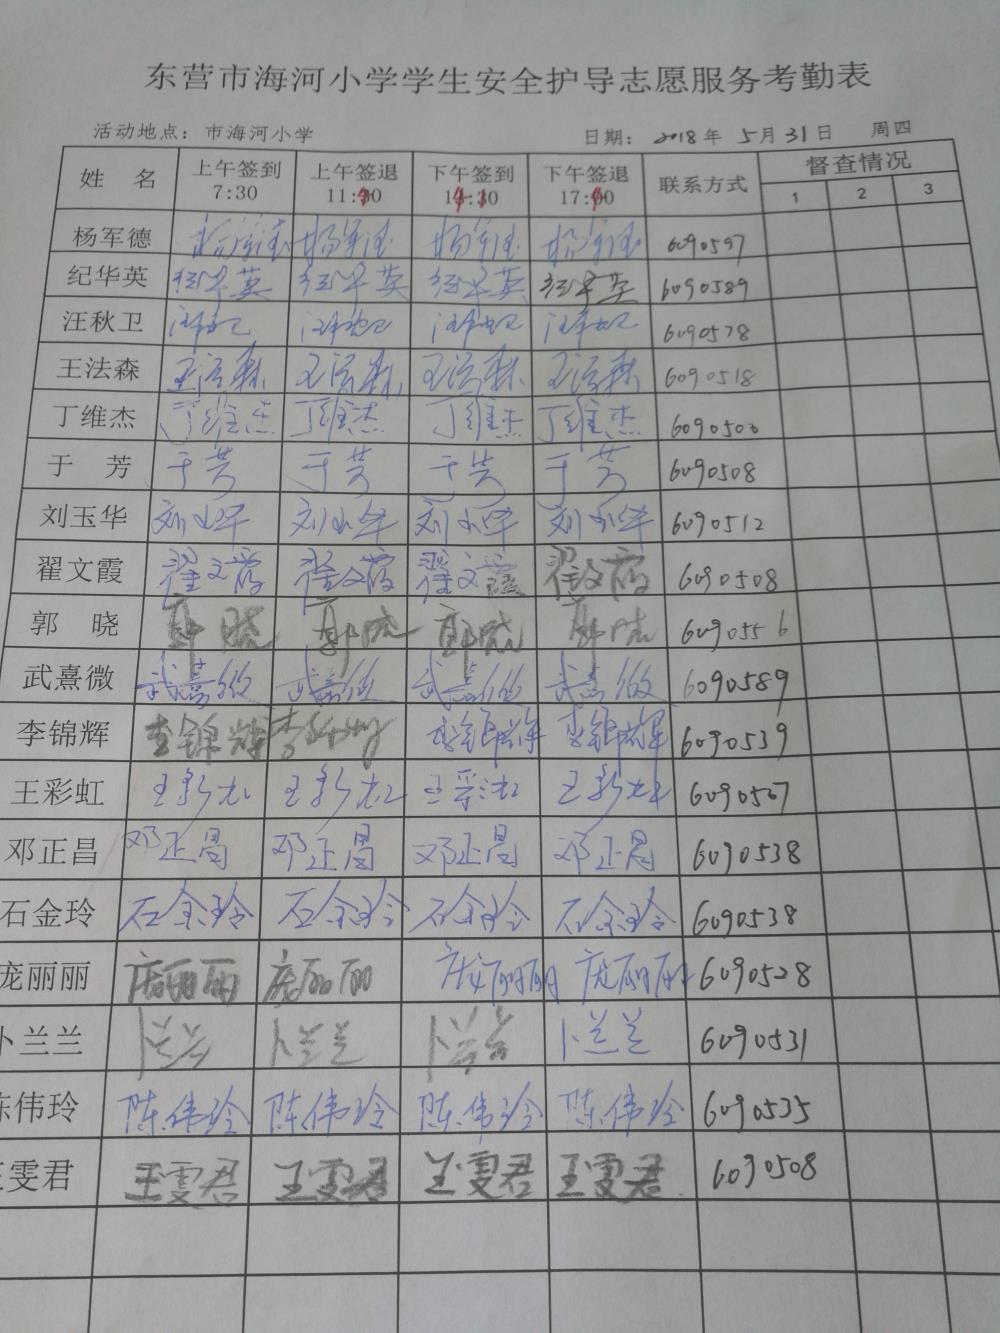 东营市海河小学学生安全护导志愿服务考勤表
活动地点：市海河小学 日期：2018年5月31日 周四
姓 名 上午签到 7:30 上午签退 下午签到 下午签退 联系方式 督查情况
1 2 3
杨军德 杨军德 杨军德 杨军德 杨军德 6090597
纪华英 纪华英 纪华英 纪华英 纪华英 6090589
汪秋卫 汪秋卫 汪秋卫 汪秋卫 汪秋卫 6090578
王法森 王法森 王法森 王法森 王法森 6090518
丁维杰 丁维杰 丁维杰 丁维杰 丁维杰
于 芳 于芳 于芳 于芳 于芳 6090508
刘玉华 刘玉华 刘玉华 刘玉华 刘玉华 6090512
翟文霞 翟文霞 翟文霞 翟文霞 翟文霞 6090508
郭 晓 郭晓 郭晓 郭晓 郭晓 6090556
武熹微 武熹微 武熹微 武熹微 武熹微 6090589
李锦辉 李锦辉 李锦辉 李锦辉 李锦辉 6090539
王彩虹 王彩虹 王彩虹 王彩虹 王彩虹 6090507
邓正昌 邓正昌 邓正昌 邓正昌 邓正昌 6090538
石金玲 石金玲 石金玲 石金玲 石金玲 6090538
庞丽丽 庞丽丽 庞丽丽 庞丽丽 庞丽丽 6090528
卜兰兰 卜兰兰 卜兰兰 卜兰兰 卜兰兰 6090531
陈伟玲 陈伟玲 陈伟玲 陈伟玲 陈伟玲 6090535
王雯君 王雯君 王雯君 王雯君 王雯君 6090508